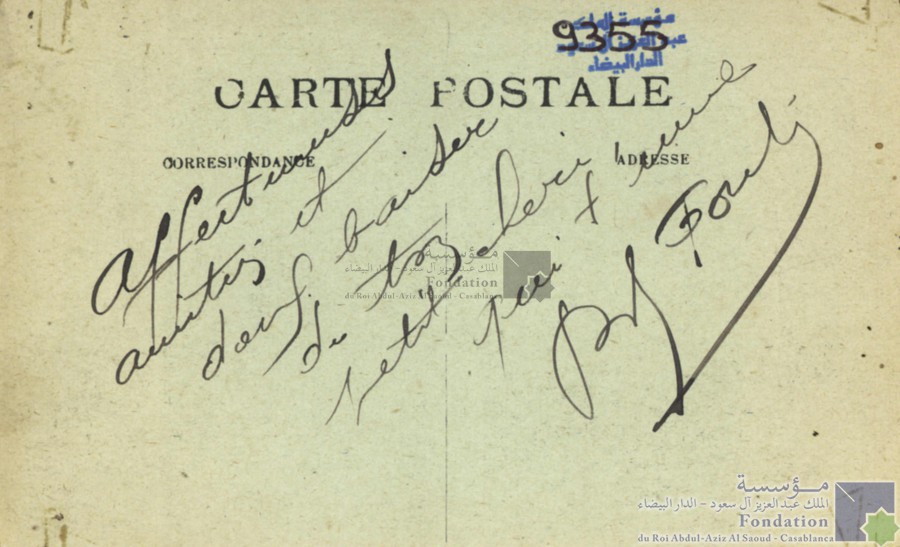 9355
مؤسسة الملك
عبد العزيز آل سعود
الدار البيضاء
CARTE POSTALE
CORRESPONDANCE
ADRESSE
Affectueuses
amitiés et
doux baiser
du tou
petit
qui t'aime
مؤسسة
الملك عبد العزيز آل سعود - الدار البيضاء
Fondation
du Roi Abdul-Aziz Al Saoud - Casablanca
مؤسسة
الملك عبد العزيز آل سعود - الدار البيضاء
Fondation
du Roi Abdul-Aziz Al Saoud - Casablanca